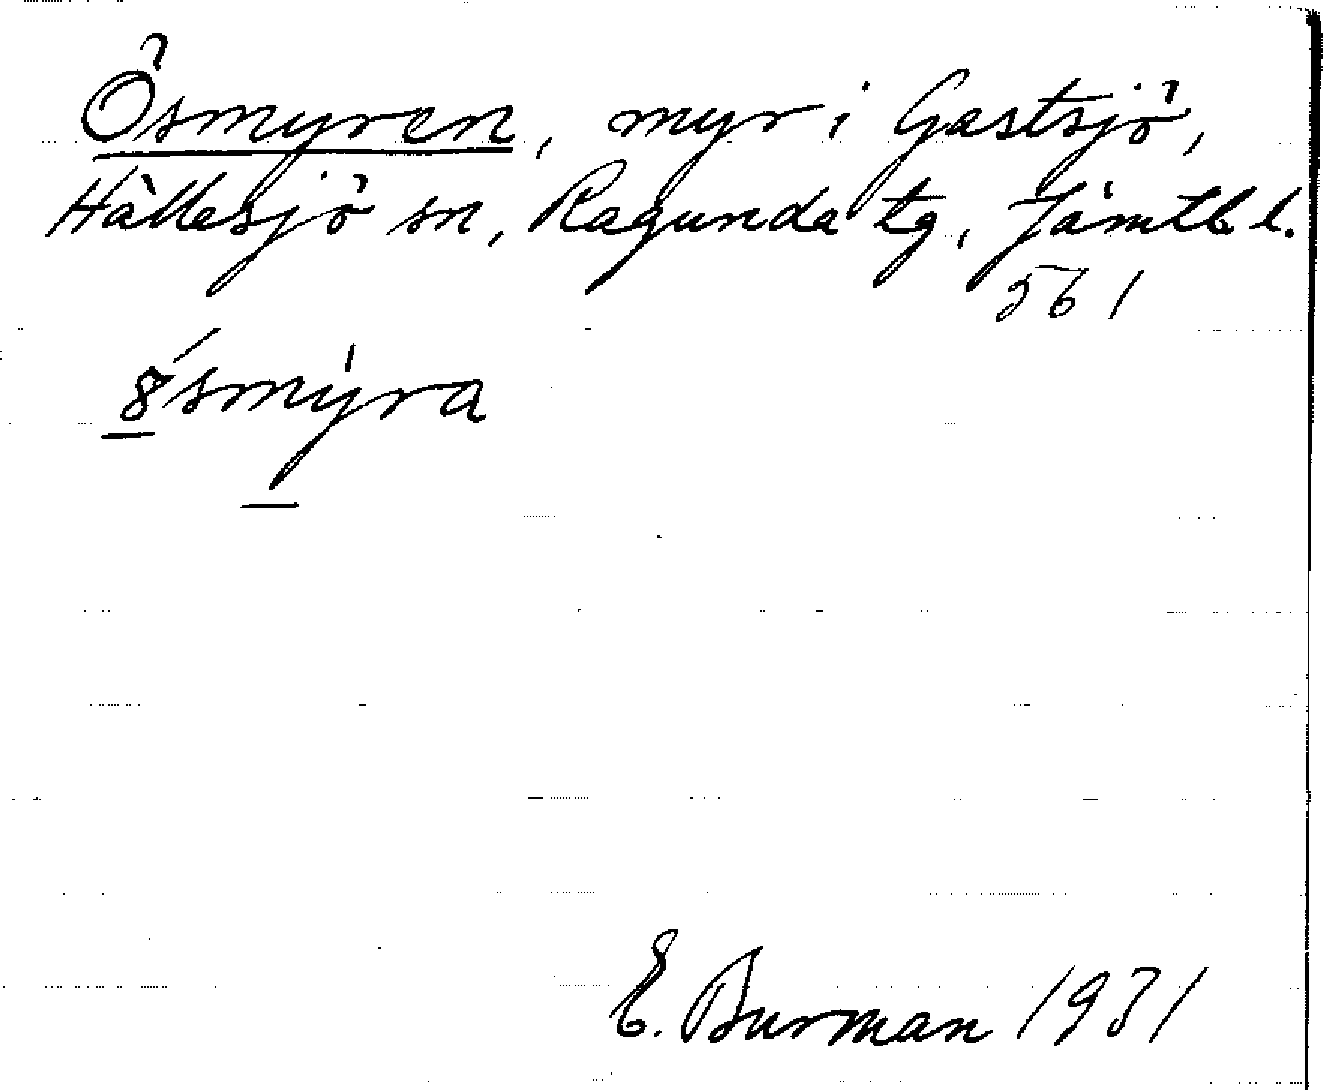 Ösmyren, myr i Gastsjö,
Hällesjö sn, Ragunda tg, Jämtl. l.
561
8́smýra
E. Burman 1931